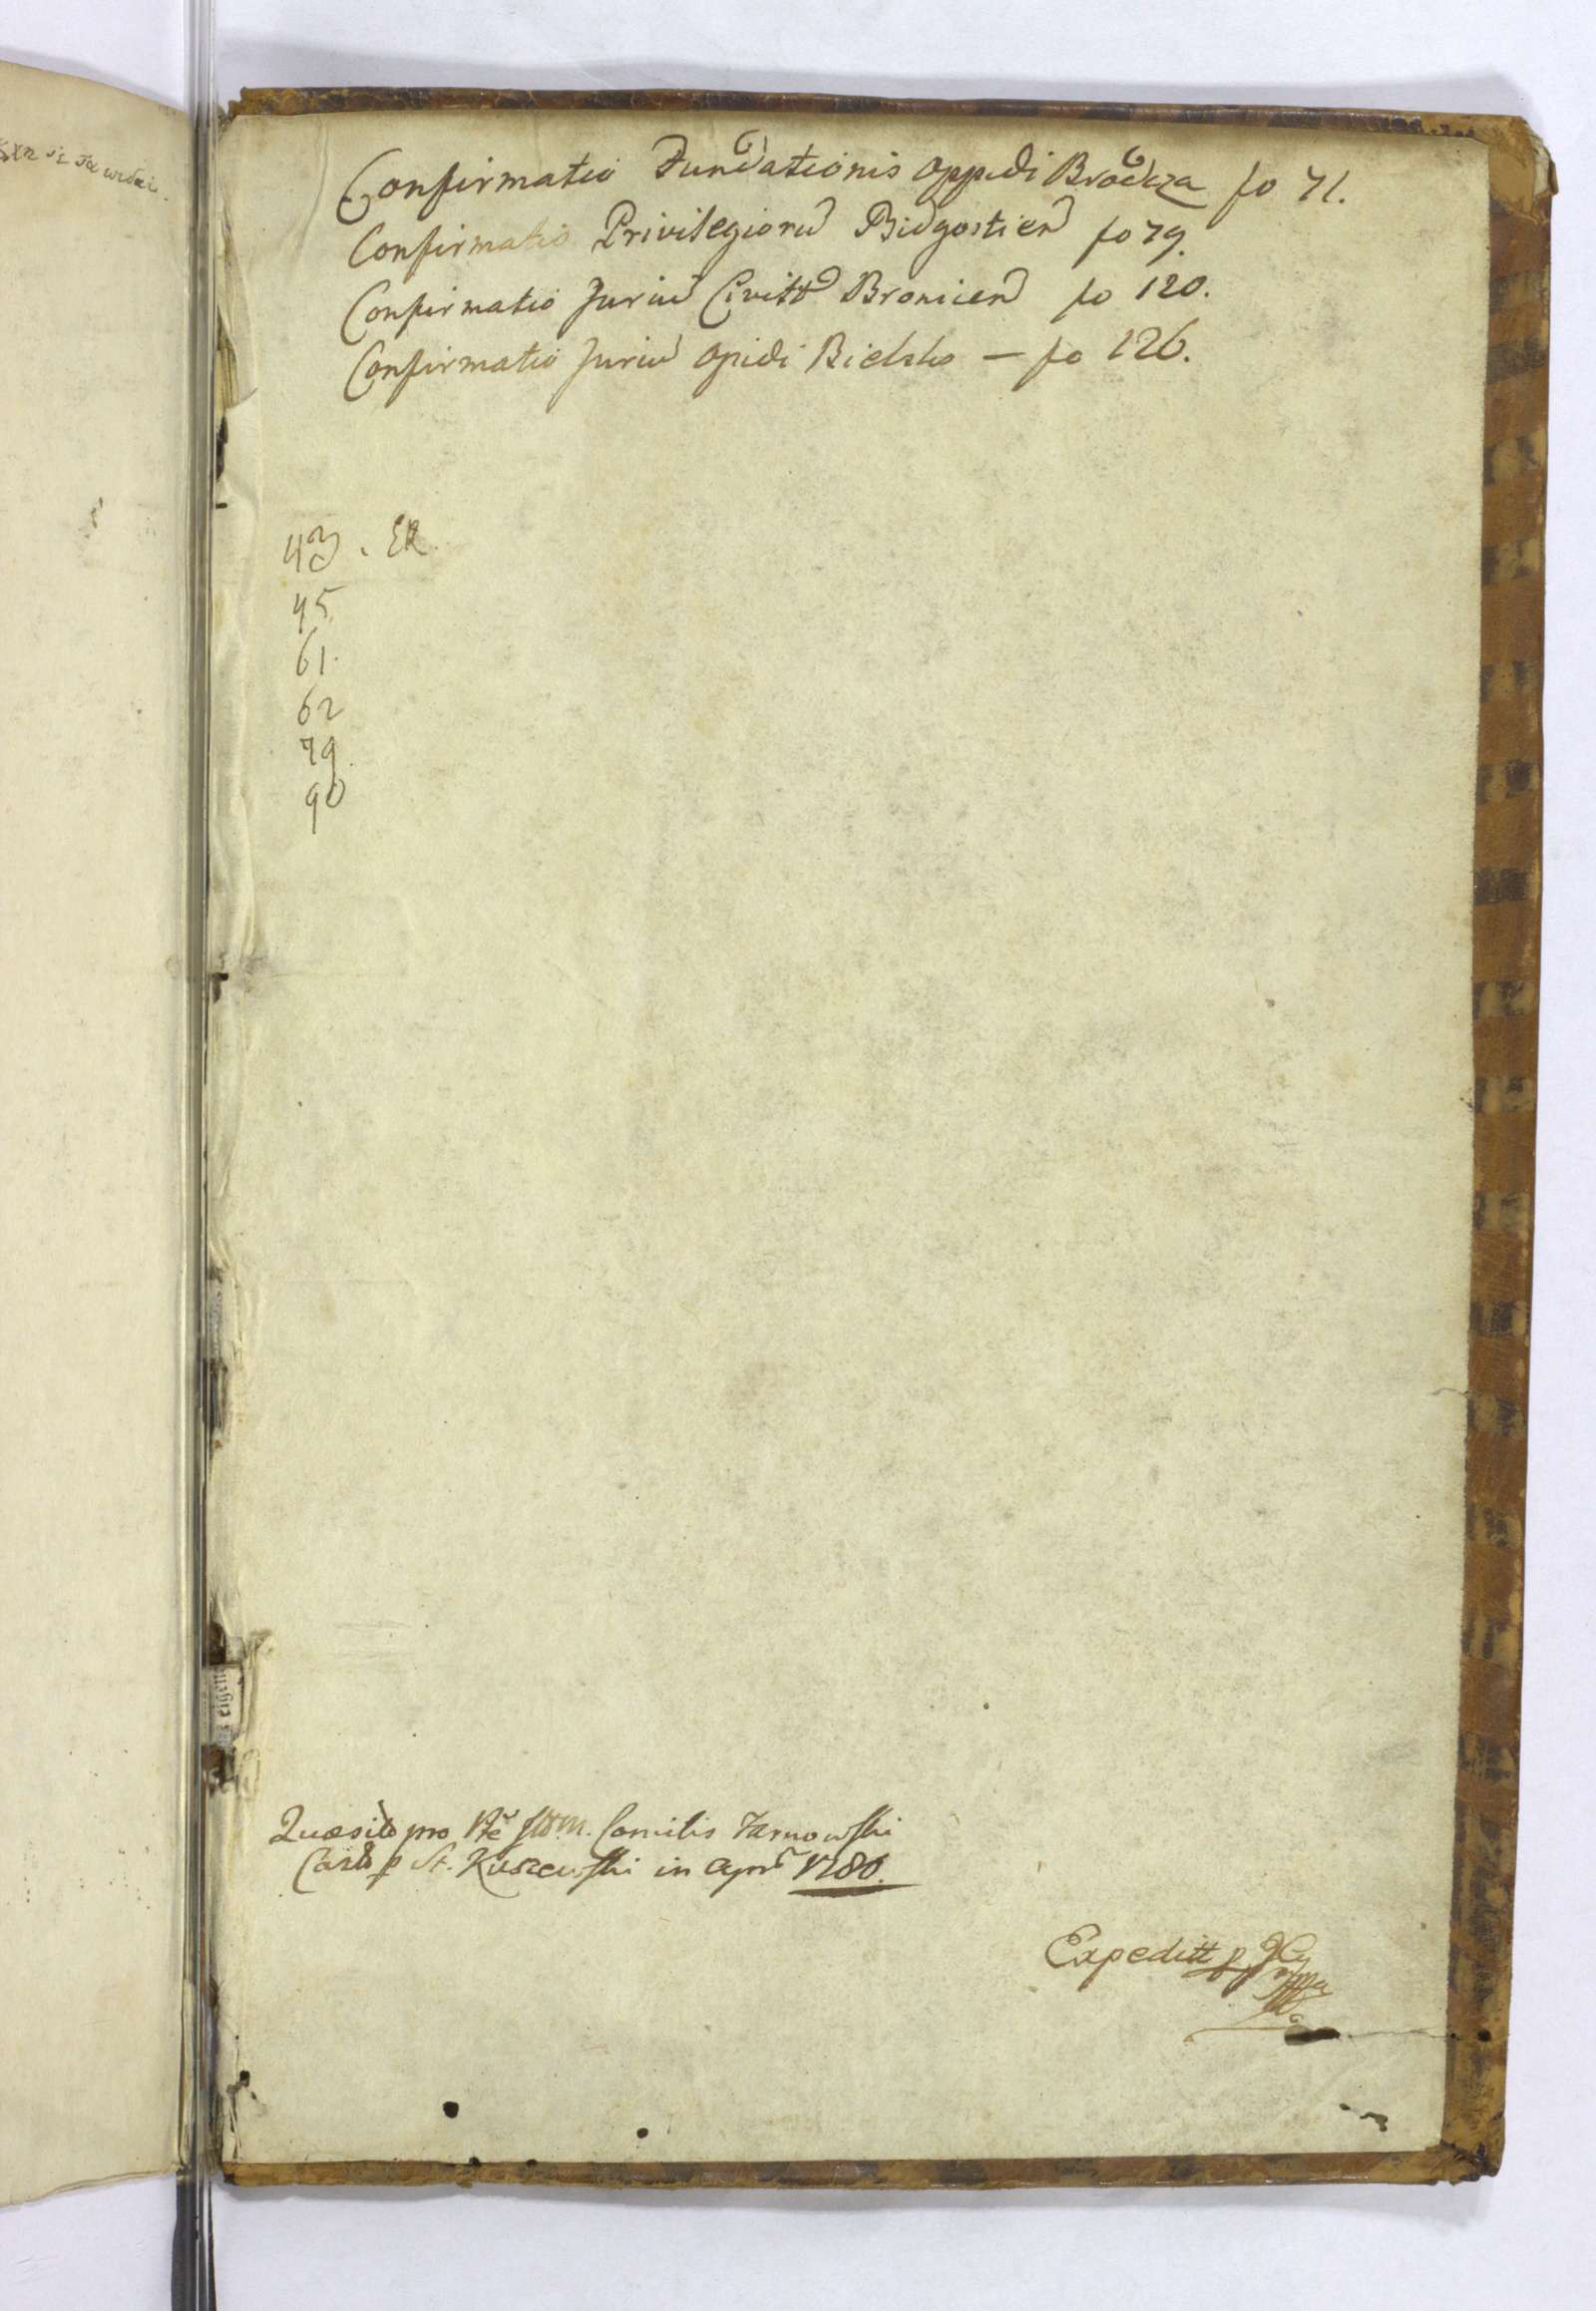 Confirmatio Fundationis oppidi Brodcza fo 71.
Confirmatio Privilegioru Bidgostien fo 79.
Confirmatio Juriu Civitt Bronicen fo 120.
Confirmatio Juriu opidi Bielsko — fo 126.
43. ER
45
61.
62
79.
90
Quæsito pro Comitis Tarnowski
p St. Kuszewski in 1786.
Expeditt p
eigen